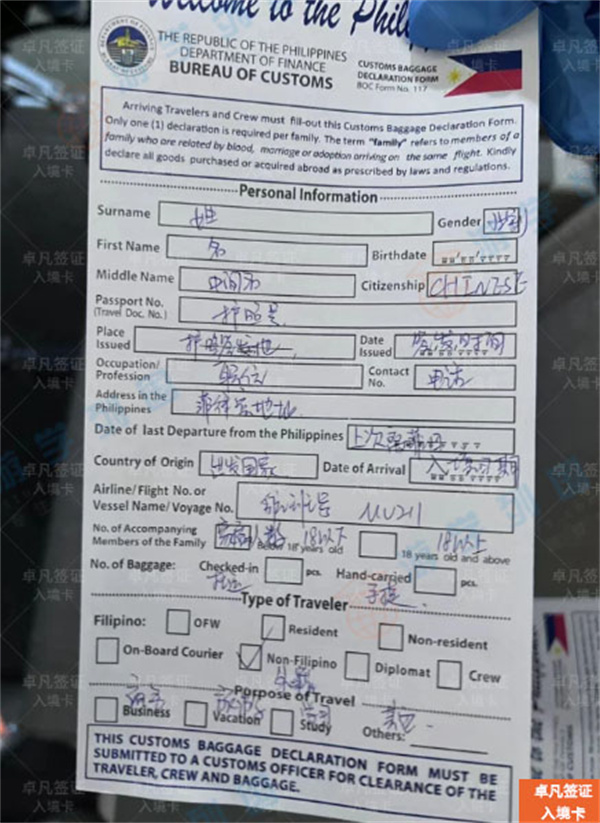 Welcome to the Phili
THE REPUBLIC OF THE PHILIPPINES
DEPARTMENT OF FINANCE
BUREAU OF CUSTOMS
CUSTOMS BAGGAGE
DECLARATION FORM
BOC Form No. 117
Arriving Travelers and Crew must fill-out this Customs Baggage Declaration Form.
Only one (1) declaration is required per family. The term "family" refers to members of a
family who are related by blood, marriage or adoption arriving on the same flight. Kindly
declare all goods purchased or acquired abroad as prescribed by laws and regulations.
Personal Information
Surname 姓 Gender 性别
First Name 名 Birthdate
Middle Name 中间名 Citizenship CHINESE
Passport No. 护照号
(Travel Doc. No.)
Place Issued 护照签发地 Date Issued 签发时间
Occupation/Profession 职位 Contact No. 电话
Address in the Philippines 菲律宾地址
Date of last Departure from the Philippines 上次离菲
Country of Origin 出发国家 Date of Arrival 入境时期
Airline/Flight No. or
Vessel Name/Voyage No. 航班号 MU211
No. of Accompanying
Members of the Family 家庭人数 18以下 Below 18 years old 18以上 18 years old and above
No. of Baggage: Checked-in pcs. Hand-carried pcs.
托运 手提
Type of Traveler
Filipino: OFW Resident Non-resident
On-Board Courier Non-Filipino Diplomat Crew
Purpose of Travel
Business Vacation Study Others:
THIS CUSTOMS BAGGAGE DECLARATION FORM MUST BE
SUBMITTED TO A CUSTOMS OFFICER FOR CLEARANCE OF THE
TRAVELER, CREW AND BAGGAGE.
卓凡签证
入境卡